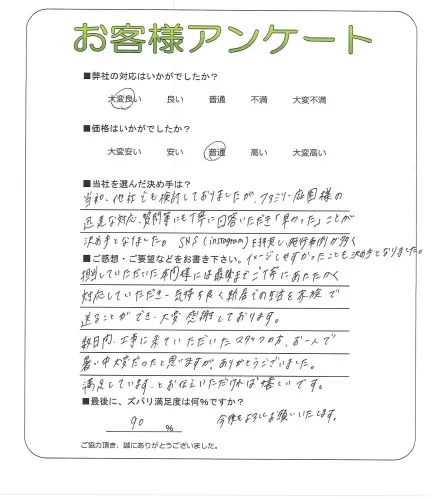 お客様アンケート
■弊社の対応はいかがでしたか？
大変良い 良い 普通 不満 大変不満
■価格はいかがでしたか？
大変安い 安い 普通 高い 大変高い
■当社を選んだ決め手は？
当初、他社でも検討しておりましたが、ファミリー庭園様の
迅速な対応、質問等にも丁寧に回答いただき「早かった」ことが
決め手となりました。SNS(instagram)を拝見し施行事例が多く
イメージしやすかったことも決め手となりました。
■ご感想・ご要望などをお書き下さい。
担当していただいた 様には最後までご丁寧にあたたかく
対応していただき、気持ち良く新居での生活を家族で
送ることができ、大変感謝しております。
数日内、工事に来ていただいたスタッフの方、お一人で
暑い中大変だったと思いますが、ありがとうございました。
満足しています、とお伝えいただければ嬉しいです。
■最後に、ズバリ満足度は何％ですか？
90 ％
今後ともよろしくお願いいたします。
ご協力頂き、誠にありがとうございました。